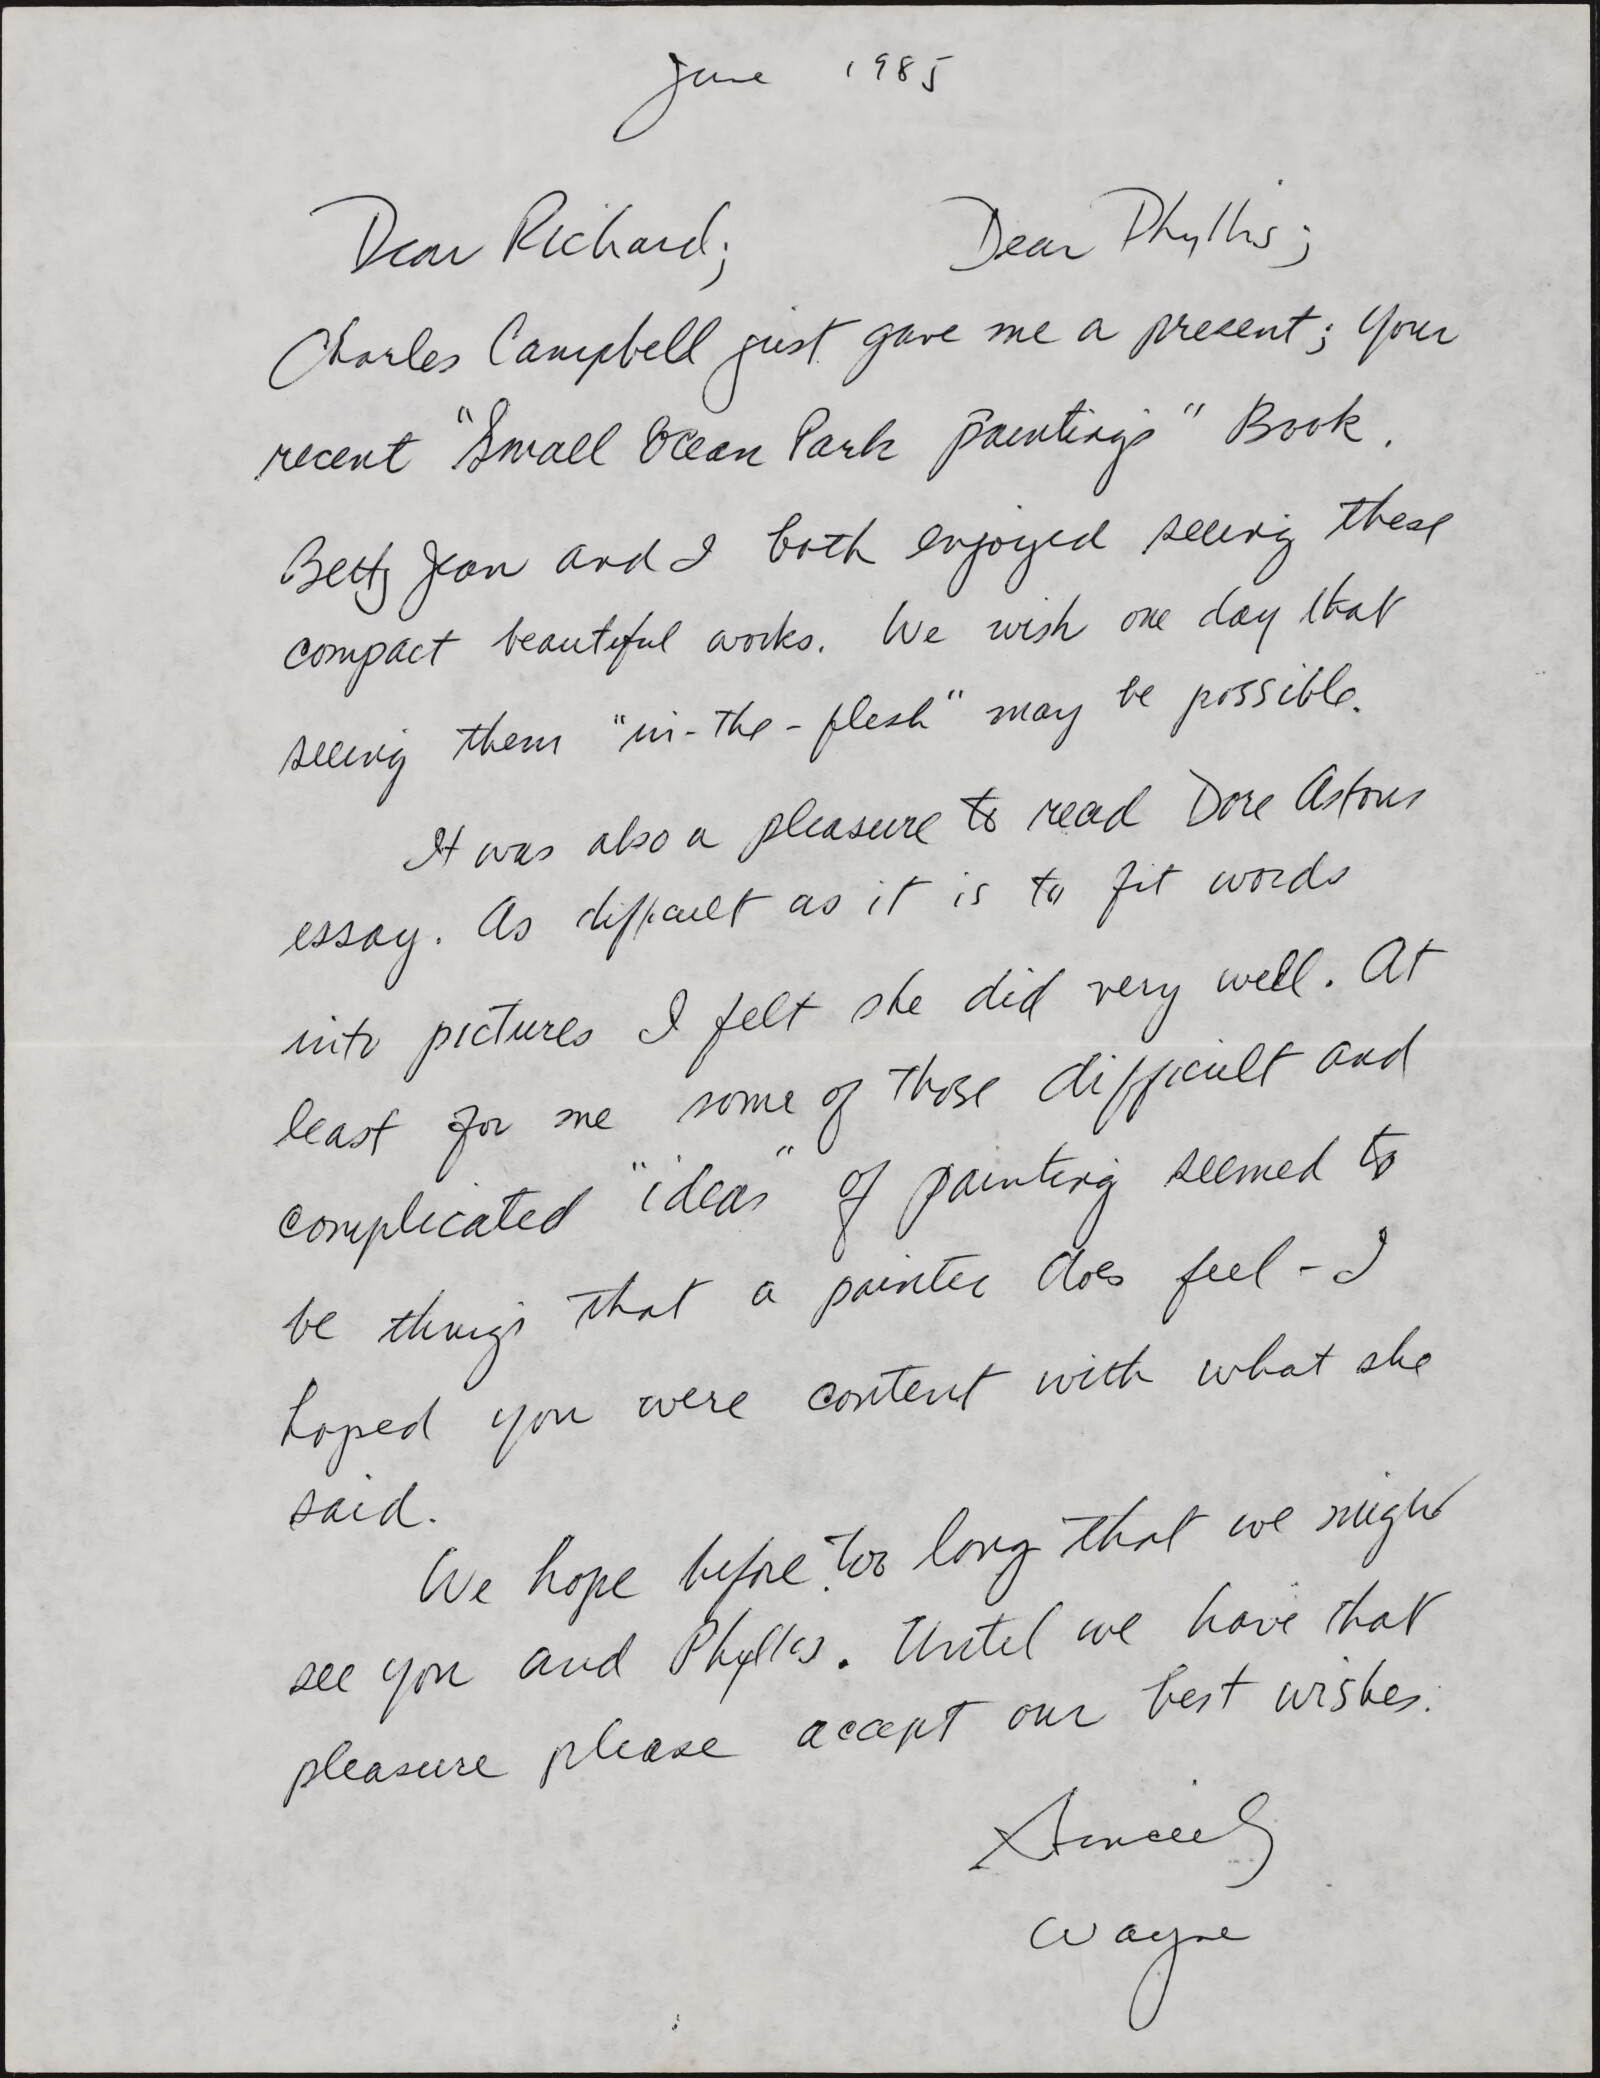 June 1985
Dear Richard; Dear Phyllis;
Charles Campbell just gave me a present; your
recent "Small Ocean Park paintings" Book.
Betty Jean and I both enjoyed seeing these
compact beautiful works. We wish one day that
seeing them "in-the-flesh" may be possible.
It was also a pleasure to read Dore Astons
essay. As difficult as it is to fit words
into pictures I felt she did very well. At
least for me some of those difficult and
complicated "ideas" of painting seemed to
be things that a painter does feel - I
hoped you were content with what she
said.
We hope before too long that we might
see you and Phyllis. Until we have that
pleasure please accept our best wishes.
Sincerely
Wayne